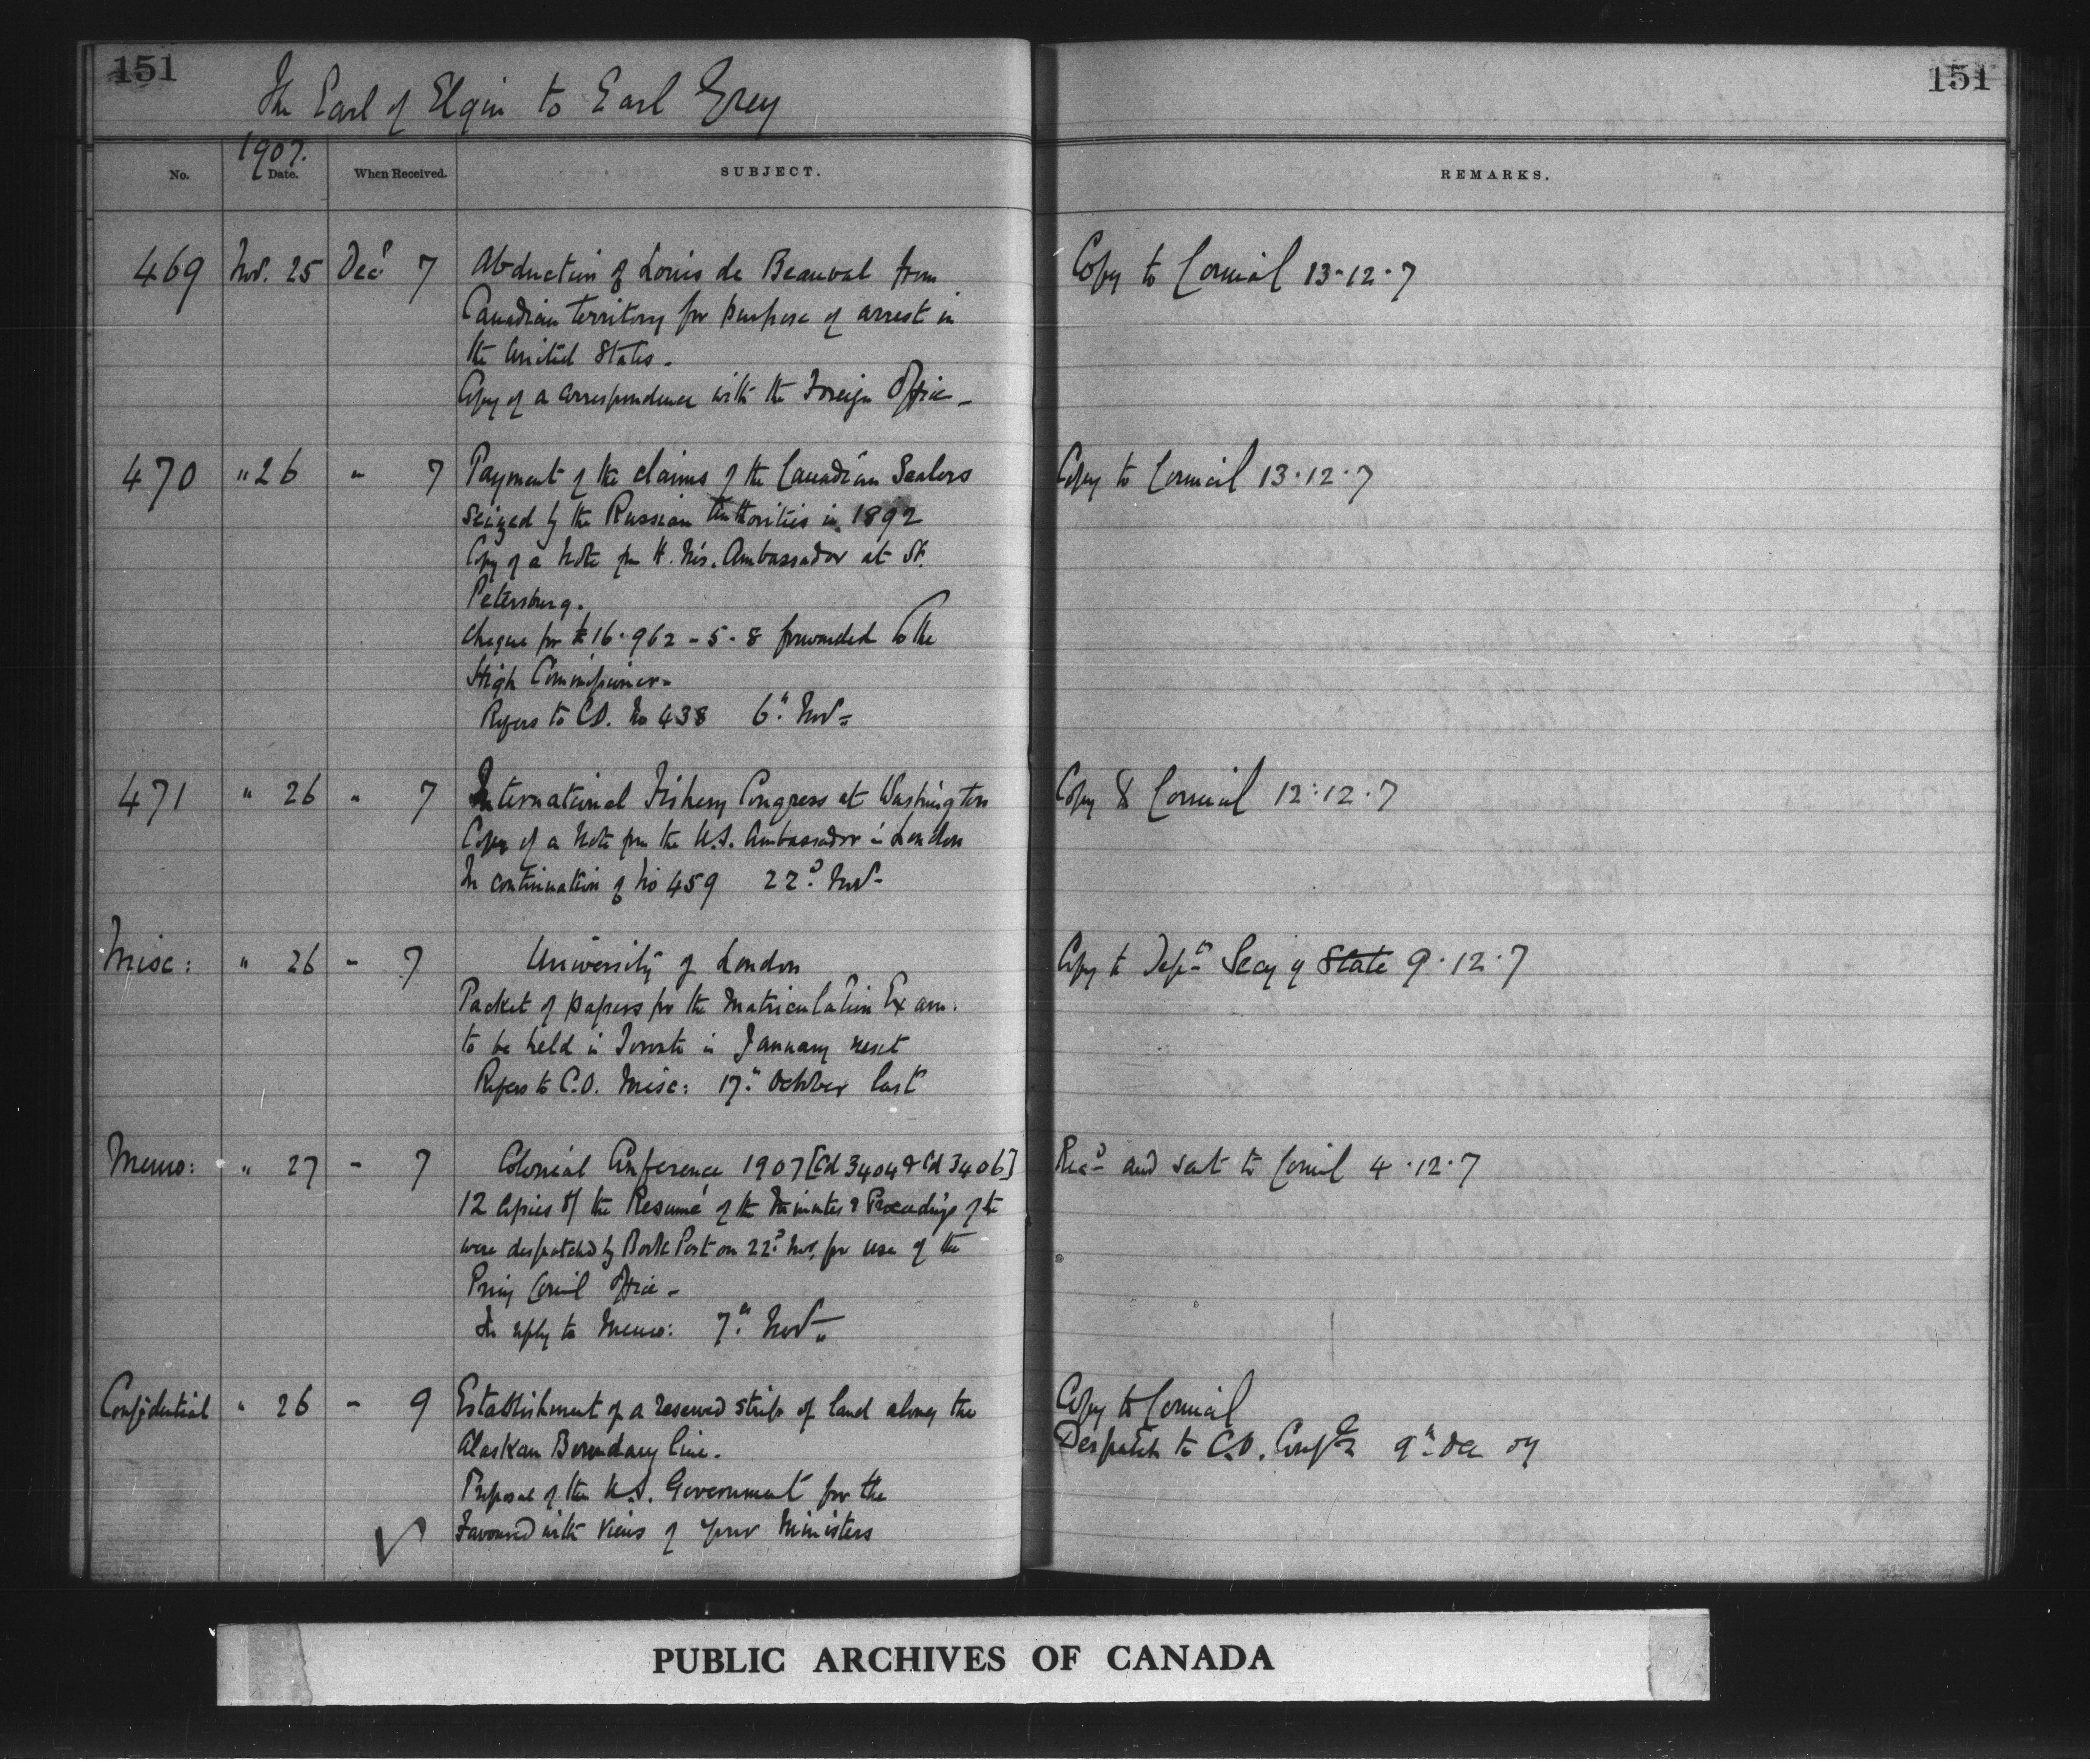 151
151
The Earl of Elgin to Earl Grey
1907.
No. Date. When Received. SUBJECT. REMARKS.
469 Nov. 25 Decr 7 Abduction of Louis de Beauval from Copy to Council 13.12.7
Canadian territory for purpose of arrest in
the United States.
Copy of a correspondence with the Foreign Office -
470 " 26 " 7 Payment of the claims of the Canadian Sealers Copy to Council 13.12.7
seized by the Russian Authorities in 1892
Copy of a Note fm H. M's. Ambassador at St.
Petersburg.
Cheque for £16.962-5-8 forwarded to the
High Commissioner-
Refers to C.O. No 438 6" Nov-
471 " 26 " 7 International Fishery Congress at Washington Copy to Council 12.12.7
Copy of a Note fm the U.S. Ambassador in London
In continuation of No 459 22d Nov-
Misc: " 26 - 7 University of London Copy to Dept Secy of State 9.12.7
Packet of papers for the Matriculation Exam.
to be held in Toronto in January next
Refers to C.O. Misc: 17th October last
Memo: " 27 - 7 Colonial Conference 1907 [Cd 3404 & Cd 3406] Recd and sent to Council 4.12.7
12 copies of the Resumé of the Minutes & Proceedings of the
were despatched by Book Post on 22d Nov. for use of the
Privy Council Office -
In reply to Memo: 7th Nov-
Confidential " 26 - 9 Establishment of a reserved strip of land along the Copy to Council
Alaskan Boundary line. Despatch to C.O. Confl 9th Dec 07
Proposal of the U.S. Government for the
Favoured with views of your Ministers
PUBLIC ARCHIVES OF CANADA